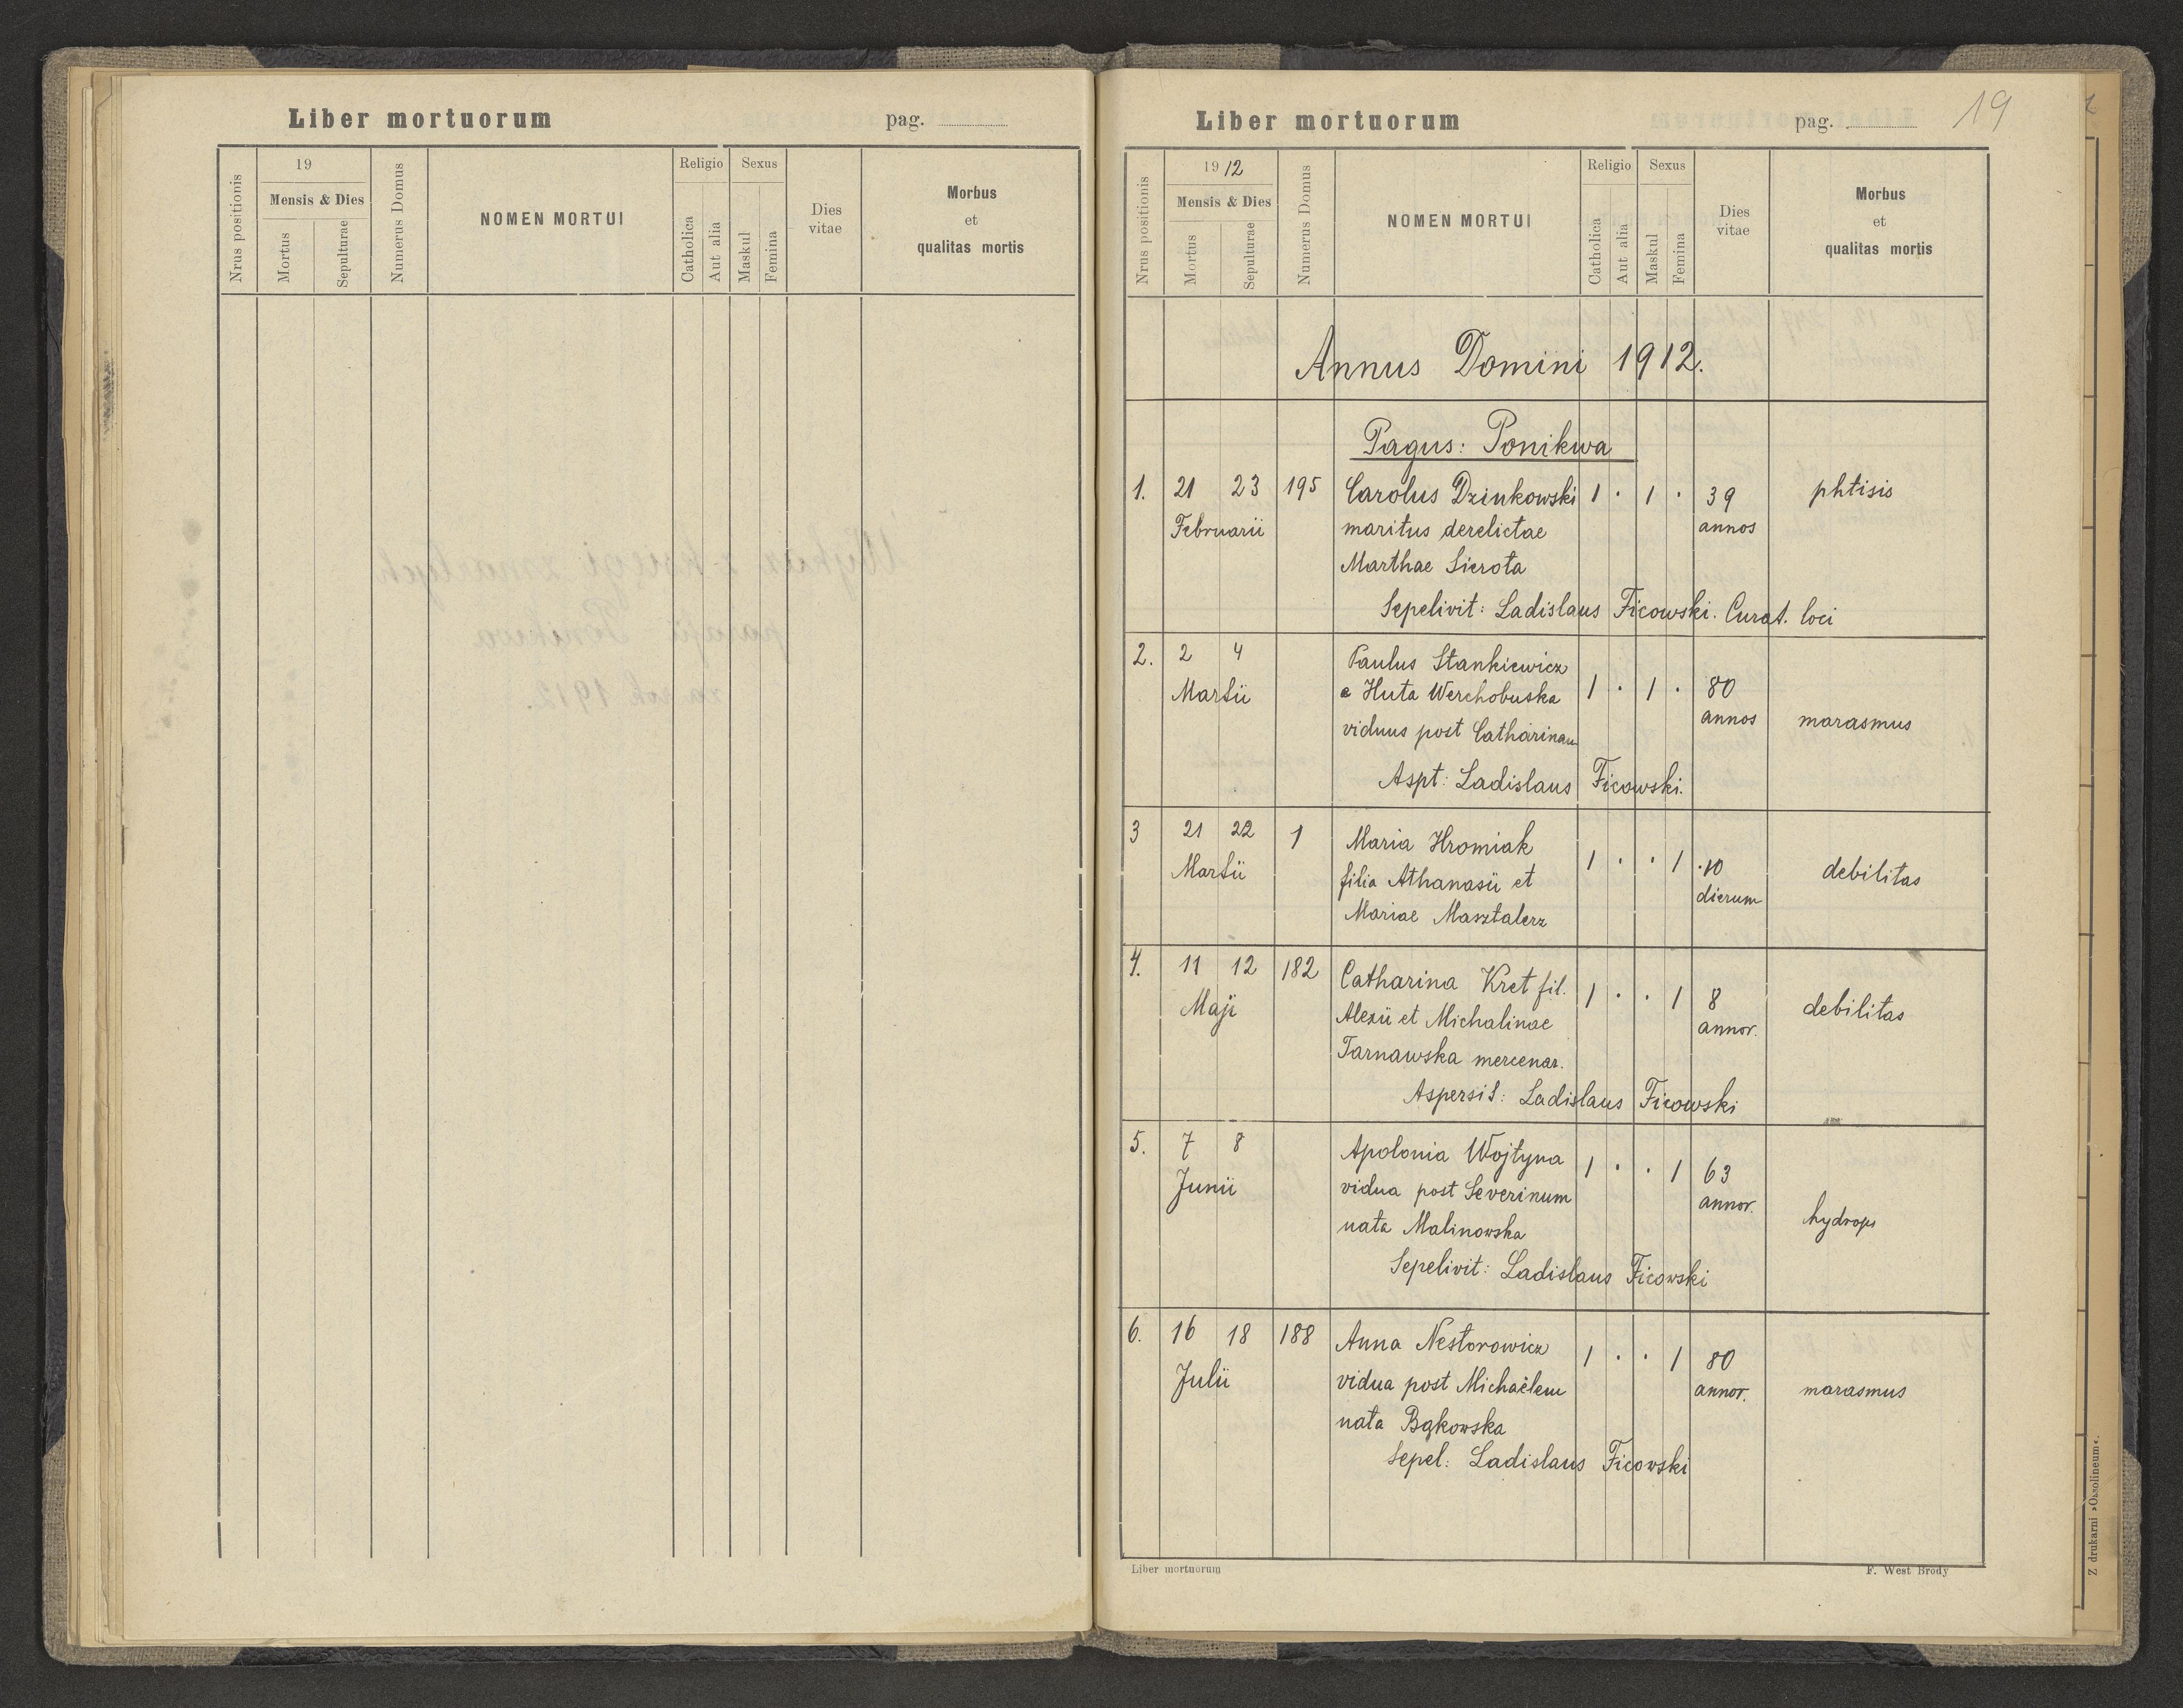 Liber mortuorum pag.
Nrus positionis
19
Mensis & Dies
Mortus
Sepulturae
Numerus Domus
NOMEN MORTUI
Religio
Catholica
Aut alia
Sexus
Maskul
Femina
Dies
vitae
Morbus
et
qualitas mortis
Liber mortuorum pag. 19
Nrus positionis
1912
Mensis & Dies
Mortus
Sepulturae
Numerus Domus
NOMEN MORTUI
Religio
Catholica
Aut alia
Sexus
Maskul
Femina
Dies
vitae
Morbus
et
qualitas mortis
Annus Domini 1912.
Pagus: Ponikwa
1. 21 23 195 Carolus Dzinkowski 1 · 1 · 39 phtisis
Februarii maritus derelictae annos
Marthae Sierota
Sepelivit: Ladislaus Ficowski. Curat. loci
2. 2 4 Paulus Stankiewicz
Martii e Huta Werchobuska 1 · 1 · 80
viduus post Catharinam annos marasmus
Aspt: Ladislaus Ficowski.
3 21 22 1 Maria Hromiak 1 · · 1 10
Martii filia Athanasii et dierum debilitas
Mariae Masztalerz
4. 11 12 182 Catharina Kret fil. 1 · · 1 8
Maji Alexii et Michalinae annor. debilitas
Tarnawska mercenar.
Aspersit: Ladislaus Ficowski
5. 7 8 Apolonia Wojtyna 1 · · 1 63
Junii vidua post Severinum annor.
nata Malinowska hydrops
Sepelivit: Ladislaus Ficowski
6. 16 18 188 Anna Nestorowicz 1 · · 1 80
Julii vidua post Michaëlem annor. marasmus
nata Bąkowska
Sepel: Ladislaus Ficowski
Liber mortuorum F. West Brody
Z drukarni »Ossolineum«.